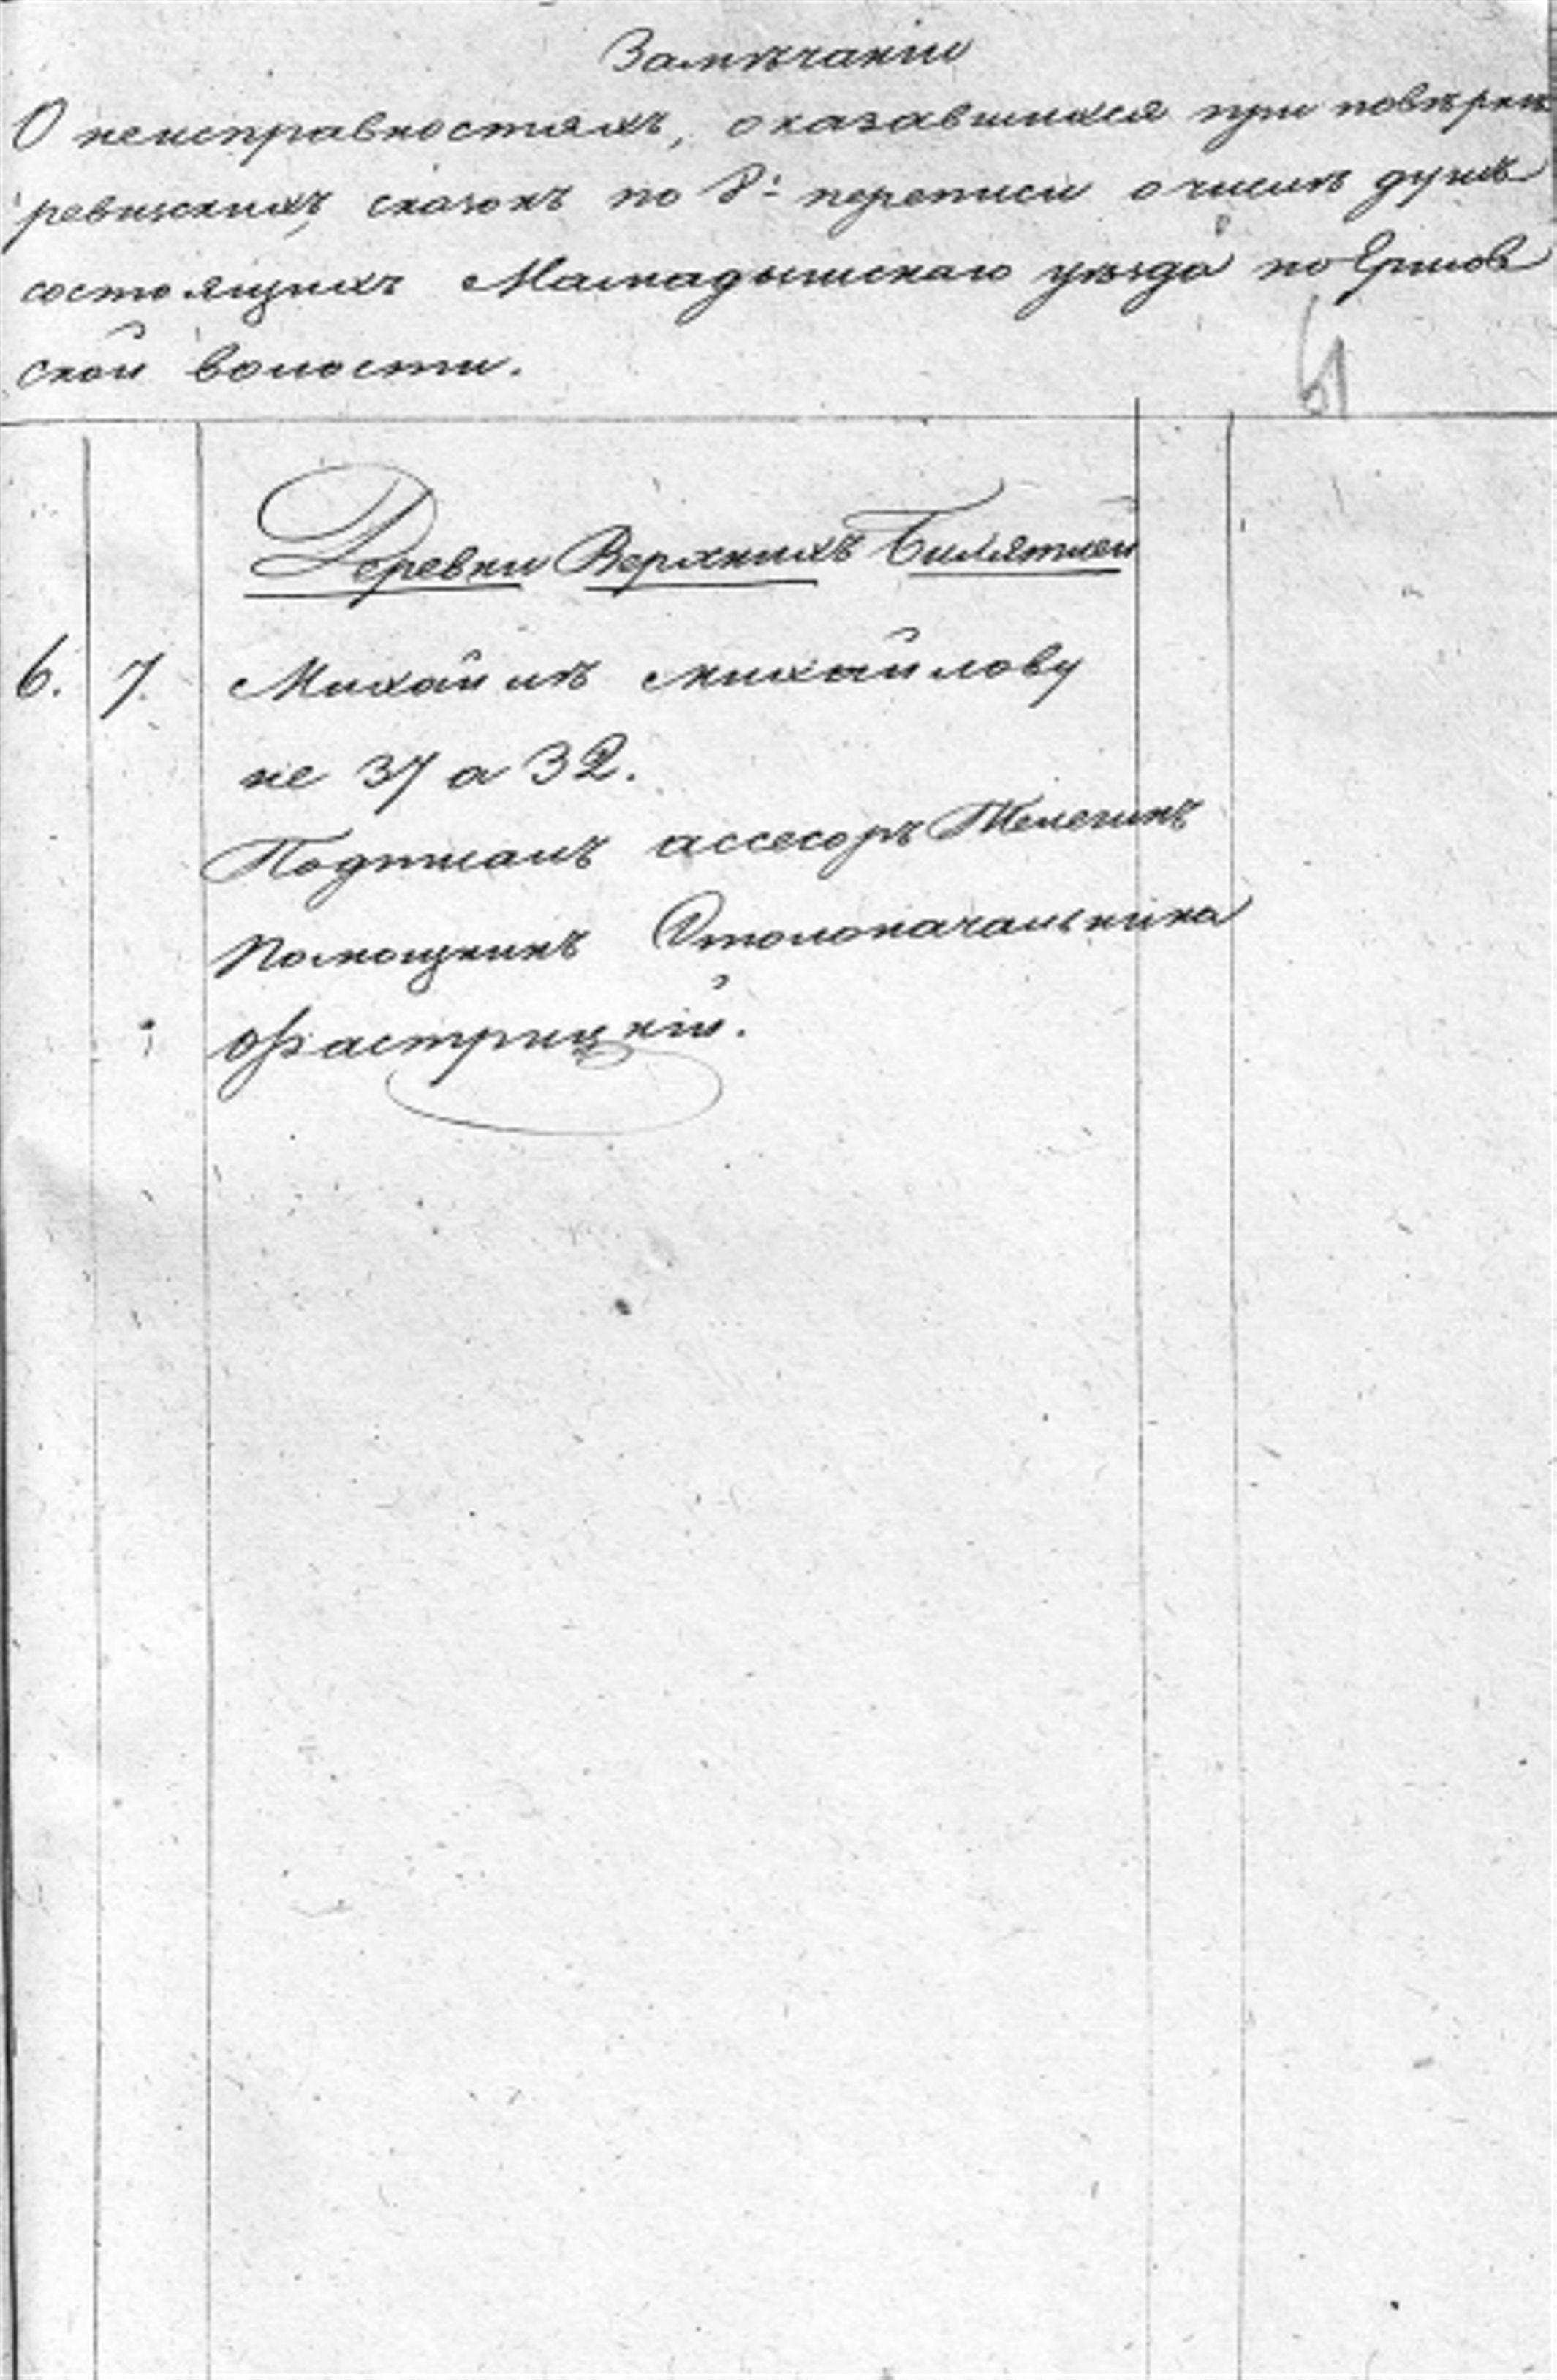 Замѣчаніи
О неисправностяхъ, оказавшихся при повѣркѣ
ревизскихъ сказокъ по 8й переписи о числѣ душъ
состоящихъ Мамадышскаго уѣзда по Ершов
ской волости.
61
Деревни Верхнихъ Билятлей
6. 7. Михайлѣ Михайлову
не 37 а 32.
Подписалъ ассесоръ Телегинъ
Помощникъ Столоначальника